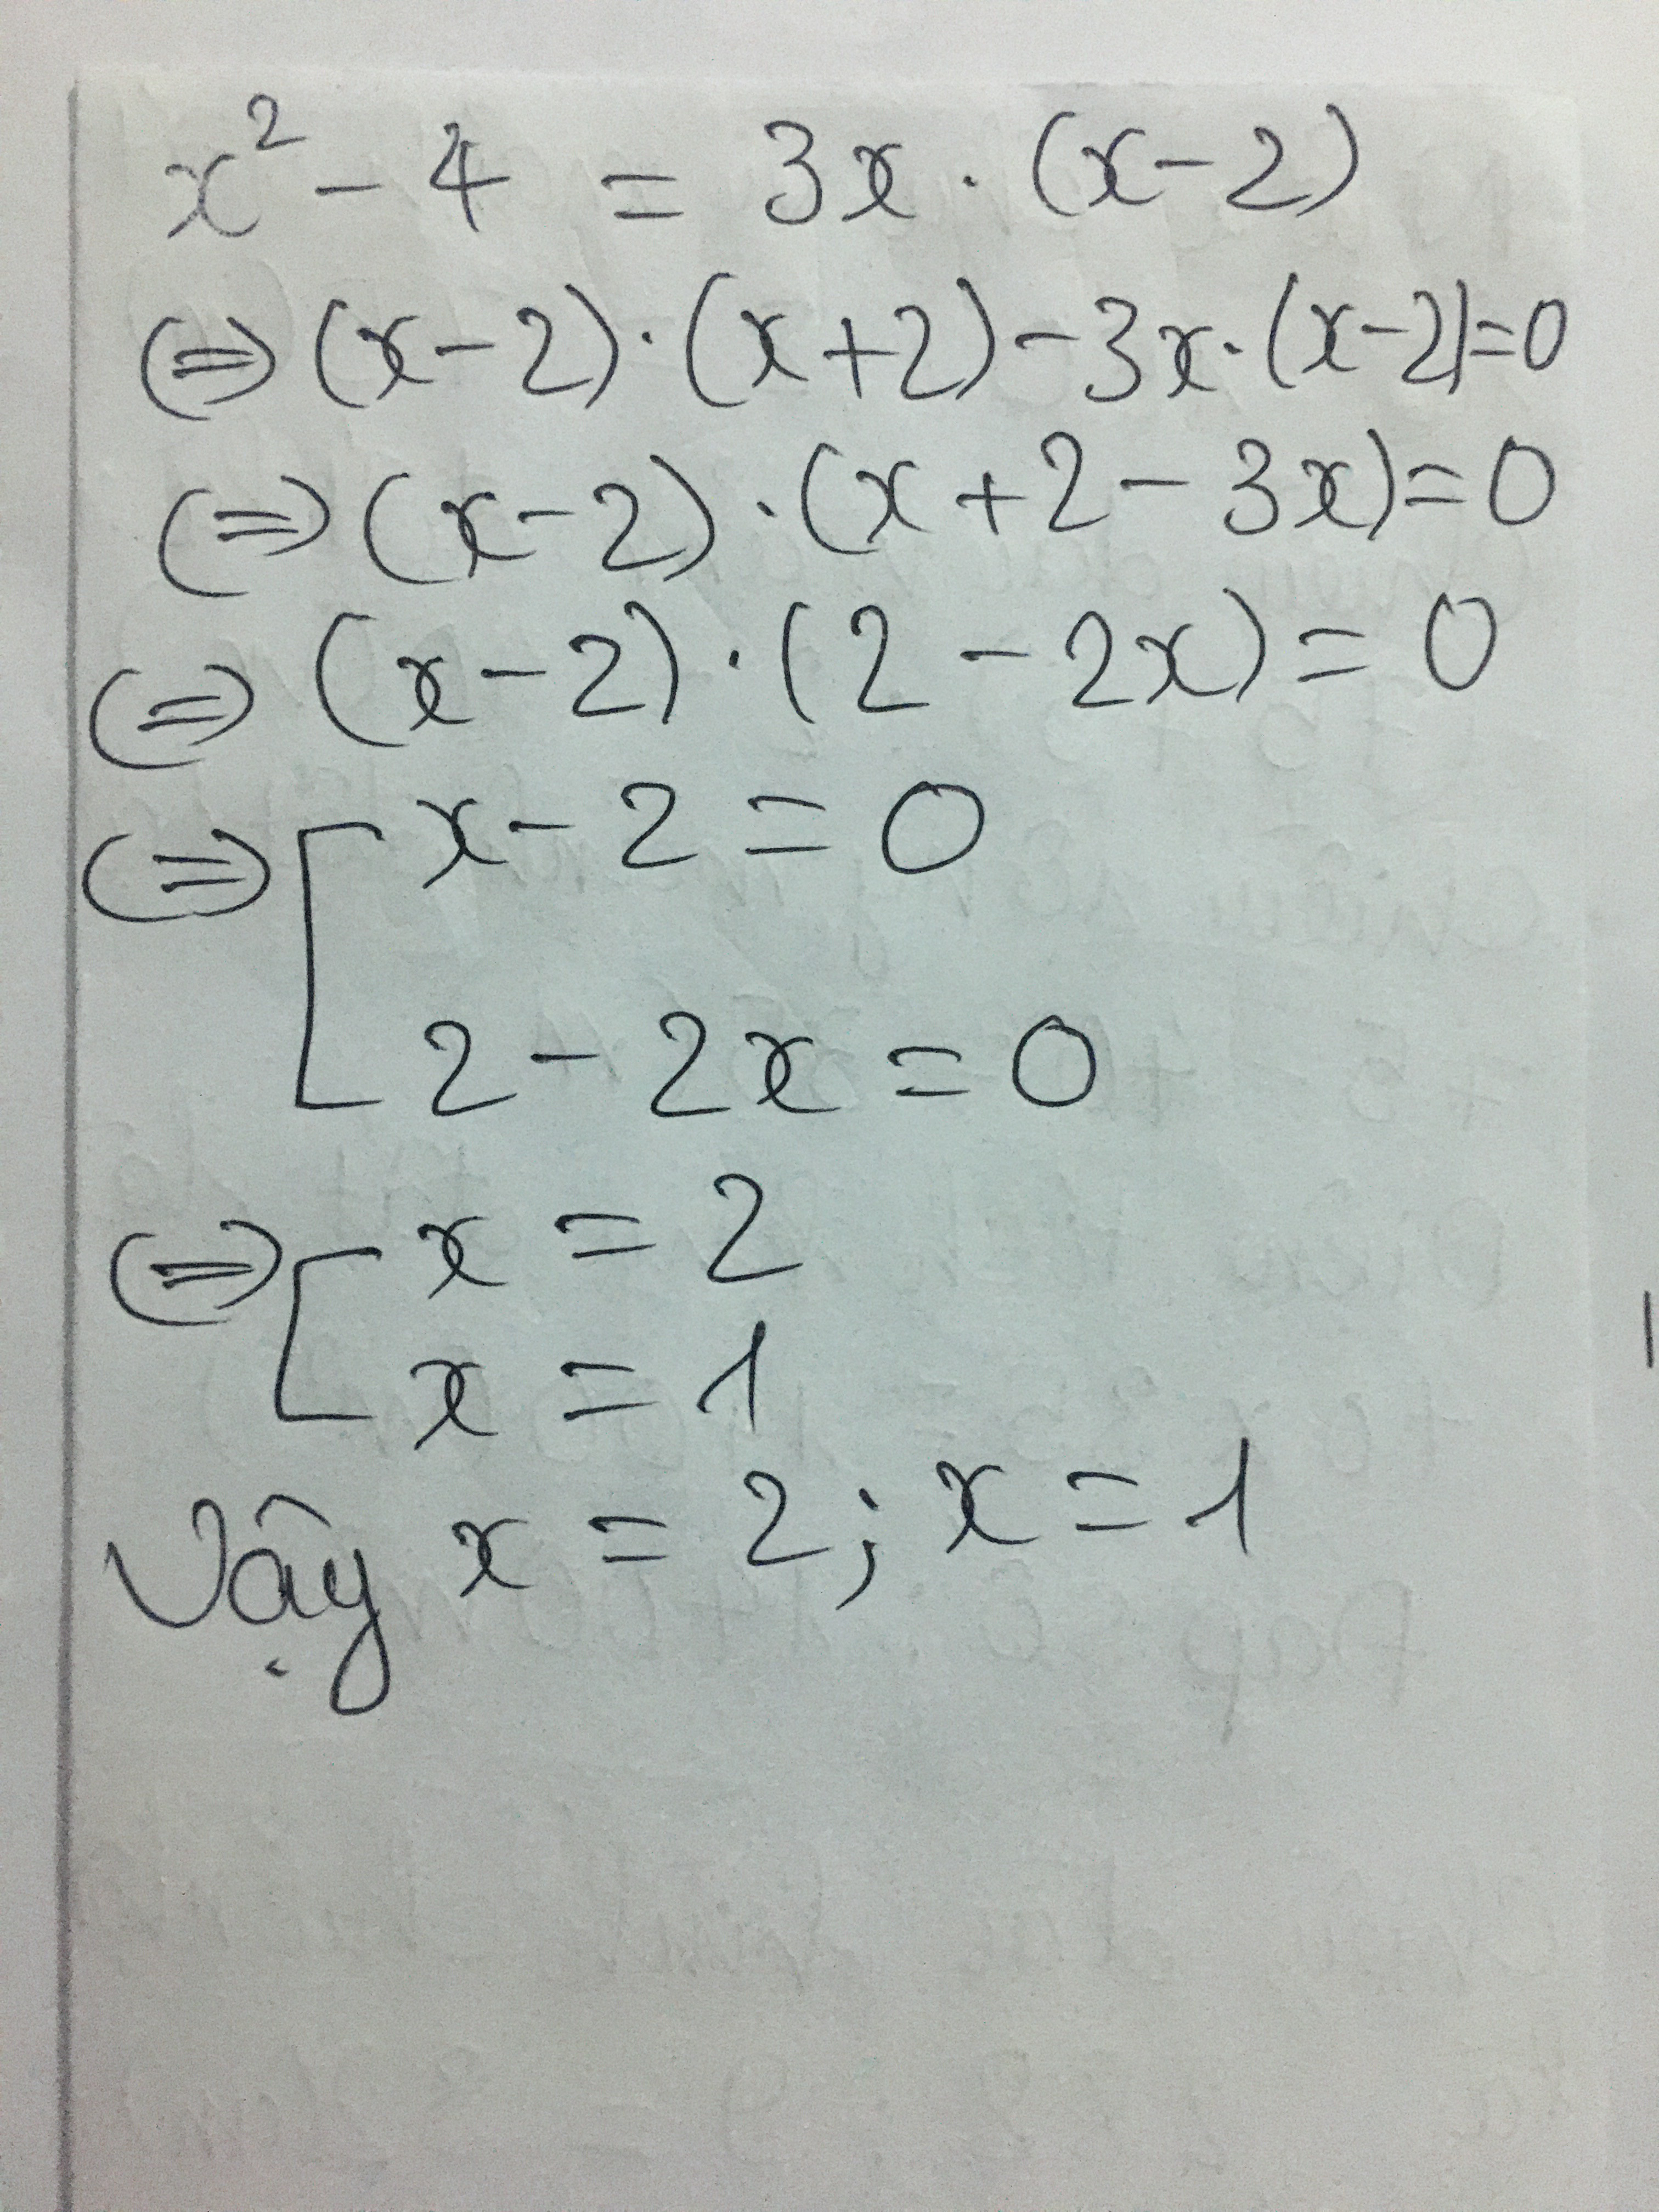 x² - 4 = 3x . (x-2)
(=) (x-2) . (x+2) - 3x . (x-2) = 0
(=) (x-2) . (x+2-3x) = 0
(=) (x-2) . (2-2x) = 0
(=) [ x-2 = 0
2-2x = 0
(=) [ x = 2
x = 1
Vậy x = 2; x = 1